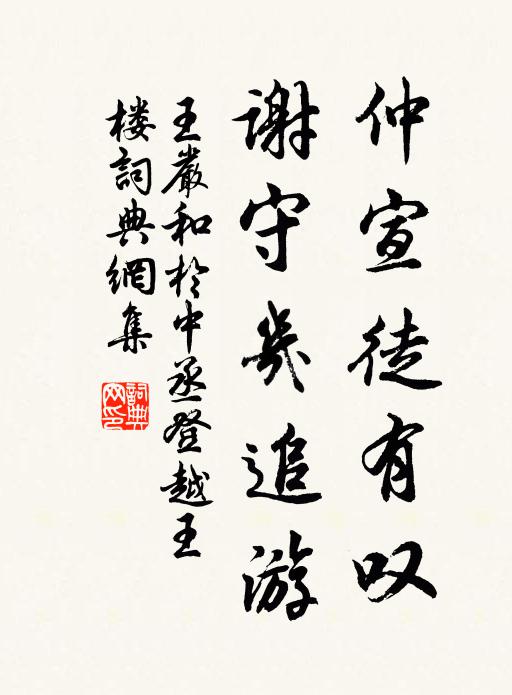 仲宣徒有叹
謝守幾追游
王嚴和於中丞登越王
楼詞典網集
詞典网印